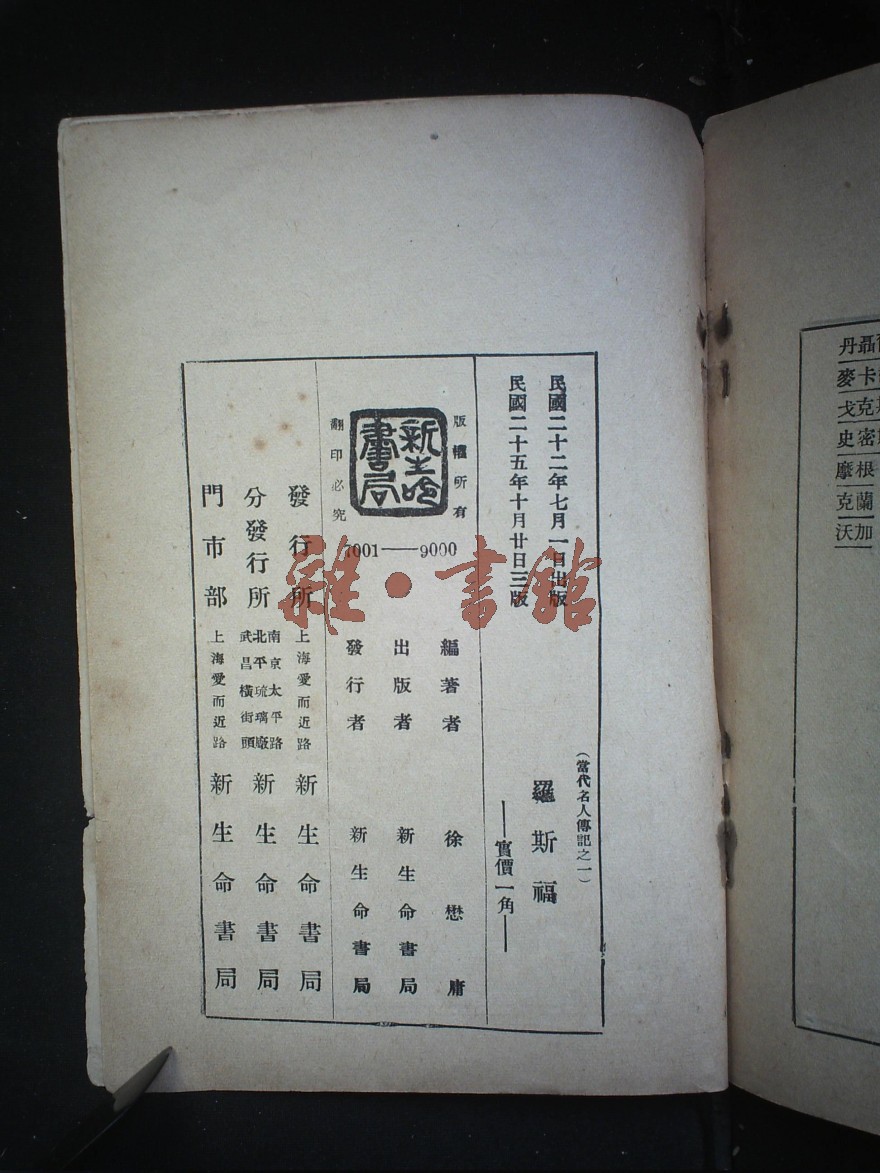 民國二十二年七月一日出版
民國二十五年十月廿日三版
(當代名人傳記之一)
羅斯福
——實價一角——
版權所有
新生命書局
翻印必究
7001——9000
編著者 徐懋庸
出版者 新生命書局
發行者 新生命書局
發行所 上海愛而近路 新生命書局
分發行所 南京太平路 北平琉璃廠 武昌橫街頭 新生命書局
門市部 上海愛而近路 新生命書局
雜·書館
丹聶
麥卡
戈克
史密
摩根
克蘭
沃加